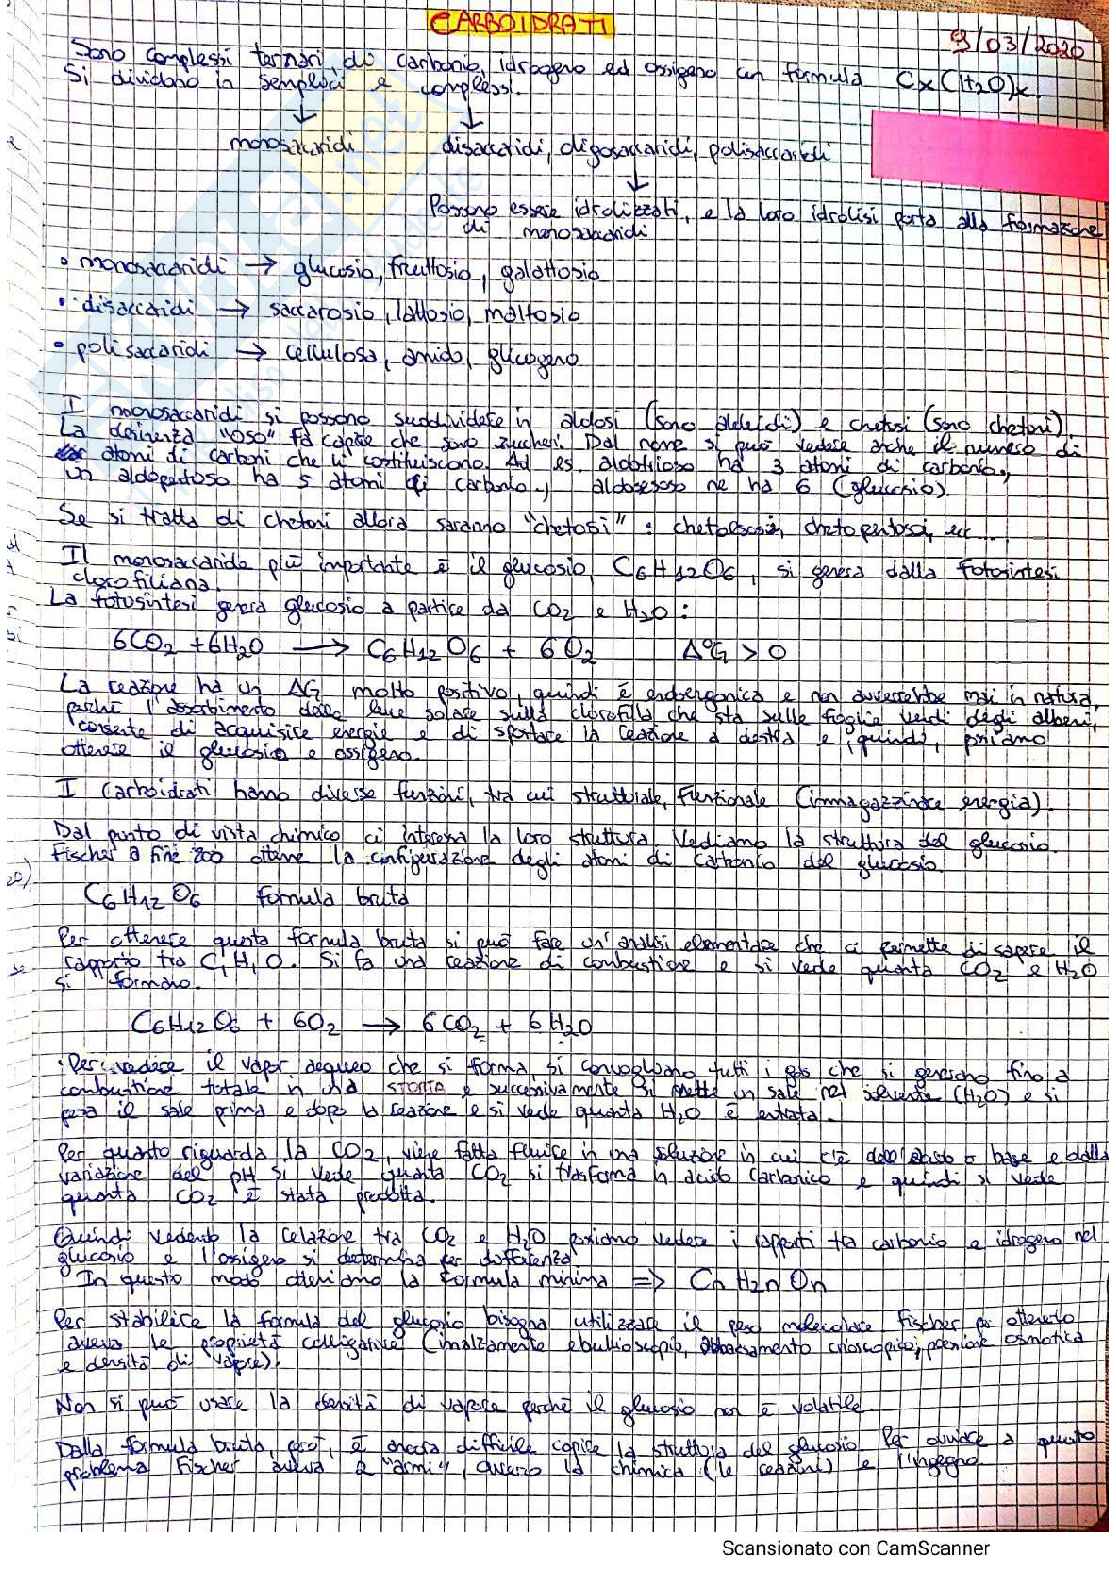 CARBOIDRATI
9/03/2020
Sono complessi ternari, di carbonio, idrogeno ed ossigeno con formula Cx(H2O)x.
Si dividono in semplici e complessi.
monosaccaridi disaccaridi, oligosaccaridi, polisaccaridi
Possono essere idrolizzati, e la loro idrolisi porta alla formazione
di monosaccaridi
• monosaccaridi → glucosio, fruttosio, galattosio
• disaccaridi → saccarosio, lattosio, maltosio
• polisaccaridi → cellulosa, amido, glicogeno
I monosaccaridi si possono suddividere in aldosi (sono aldeidi) e chetosi (sono chetoni).
La desinenza "oso" fa capire che sono zuccheri. Dal nome si può vedere anche il numero di
atomi di carboni che li costituiscono. Ad es. aldotrioso ha 3 atomi di carbonio,
un aldopentoso ha 5 atomi di carbonio, aldoesoso ne ha 6 (glucosio).
Se si tratta di chetoni allora saranno "chetosi": chetoesosi, chetopentosi, ecc....
Il monosaccaride più importante è il glucosio, C6H12O6, si genera dalla fotosintesi
clorofilliana.
La fotosintesi genera glucosio a partire da CO2 e H2O:
6CO2 + 6H2O → C6H12O6 + 6O2 Δ°G > 0
La reazione ha un ΔG molto positivo, quindi è endoergonica e non avverrebbe mai in natura,
perché l'assorbimento della luce solare sulla clorofilla che sta sulle foglie verdi degli alberi,
consente di acquisire energie e di spostare la reazione a destra e, quindi, possiamo
ottenere il glucosio e ossigeno.
I carboidrati hanno diverse funzioni, tra cui strutturale, funzionale (immagazzinare energia).
Dal punto di vista chimico ci interessa la loro struttura. Vediamo la struttura del glucosio.
Fischer a fine 800 ottenne la configurazione degli atomi di carbonio del glucosio.
C6H12O6 formula bruta
Per ottenere questa formula bruta si può fare un'analisi elementare che ci permette di sapere il
rapporto tra C, H, O. Si fa una reazione di combustione e si vede quanta CO2 e H2O
si formano.
C6H12O6 + 6O2 → 6CO2 + 6H2O
Per vedere il vapor acqueo che si forma, si convogliano tutti i gas che si generano fino a
combustione totale in una storta e successivamente si mette un sale nel solvente (H2O) e si
pesa il sale prima e dopo la reazione e si vede quanta H2O è entrata.
Per quanto riguarda la CO2, viene fatta fluire in una soluzione in cui c'è o base e dalla
variazione del pH si vede quanta CO2 si trasforma in acido carbonico e quindi si vede
quanta CO2 è stata prodotta.
Quindi vedendo la relazione tra CO2 e H2O possiamo vedere i rapporti tra carbonio e idrogeno nel
glucosio e l'ossigeno si determina per differenza
In questo modo otteniamo la formula minima => CnH2nOn
Per stabilire la formula del glucosio bisogna utilizzare il peso molecolare Fischer per ottenerlo
aveva le proprietà colligative (innalzamento ebullioscopico, abbassamento crioscopico, pressione osmotica
e densità di vapore).
Non si può usare la densità di vapore perché il glucosio non è volatile
Dalla formula bruta, però, è ancora difficile capire la struttura del glucosio. Per ovviare a questo
problema Fischer aveva 2 "armi", ovvero la chimica (le reazioni) e l'ingegno
Scansionato con CamScanner